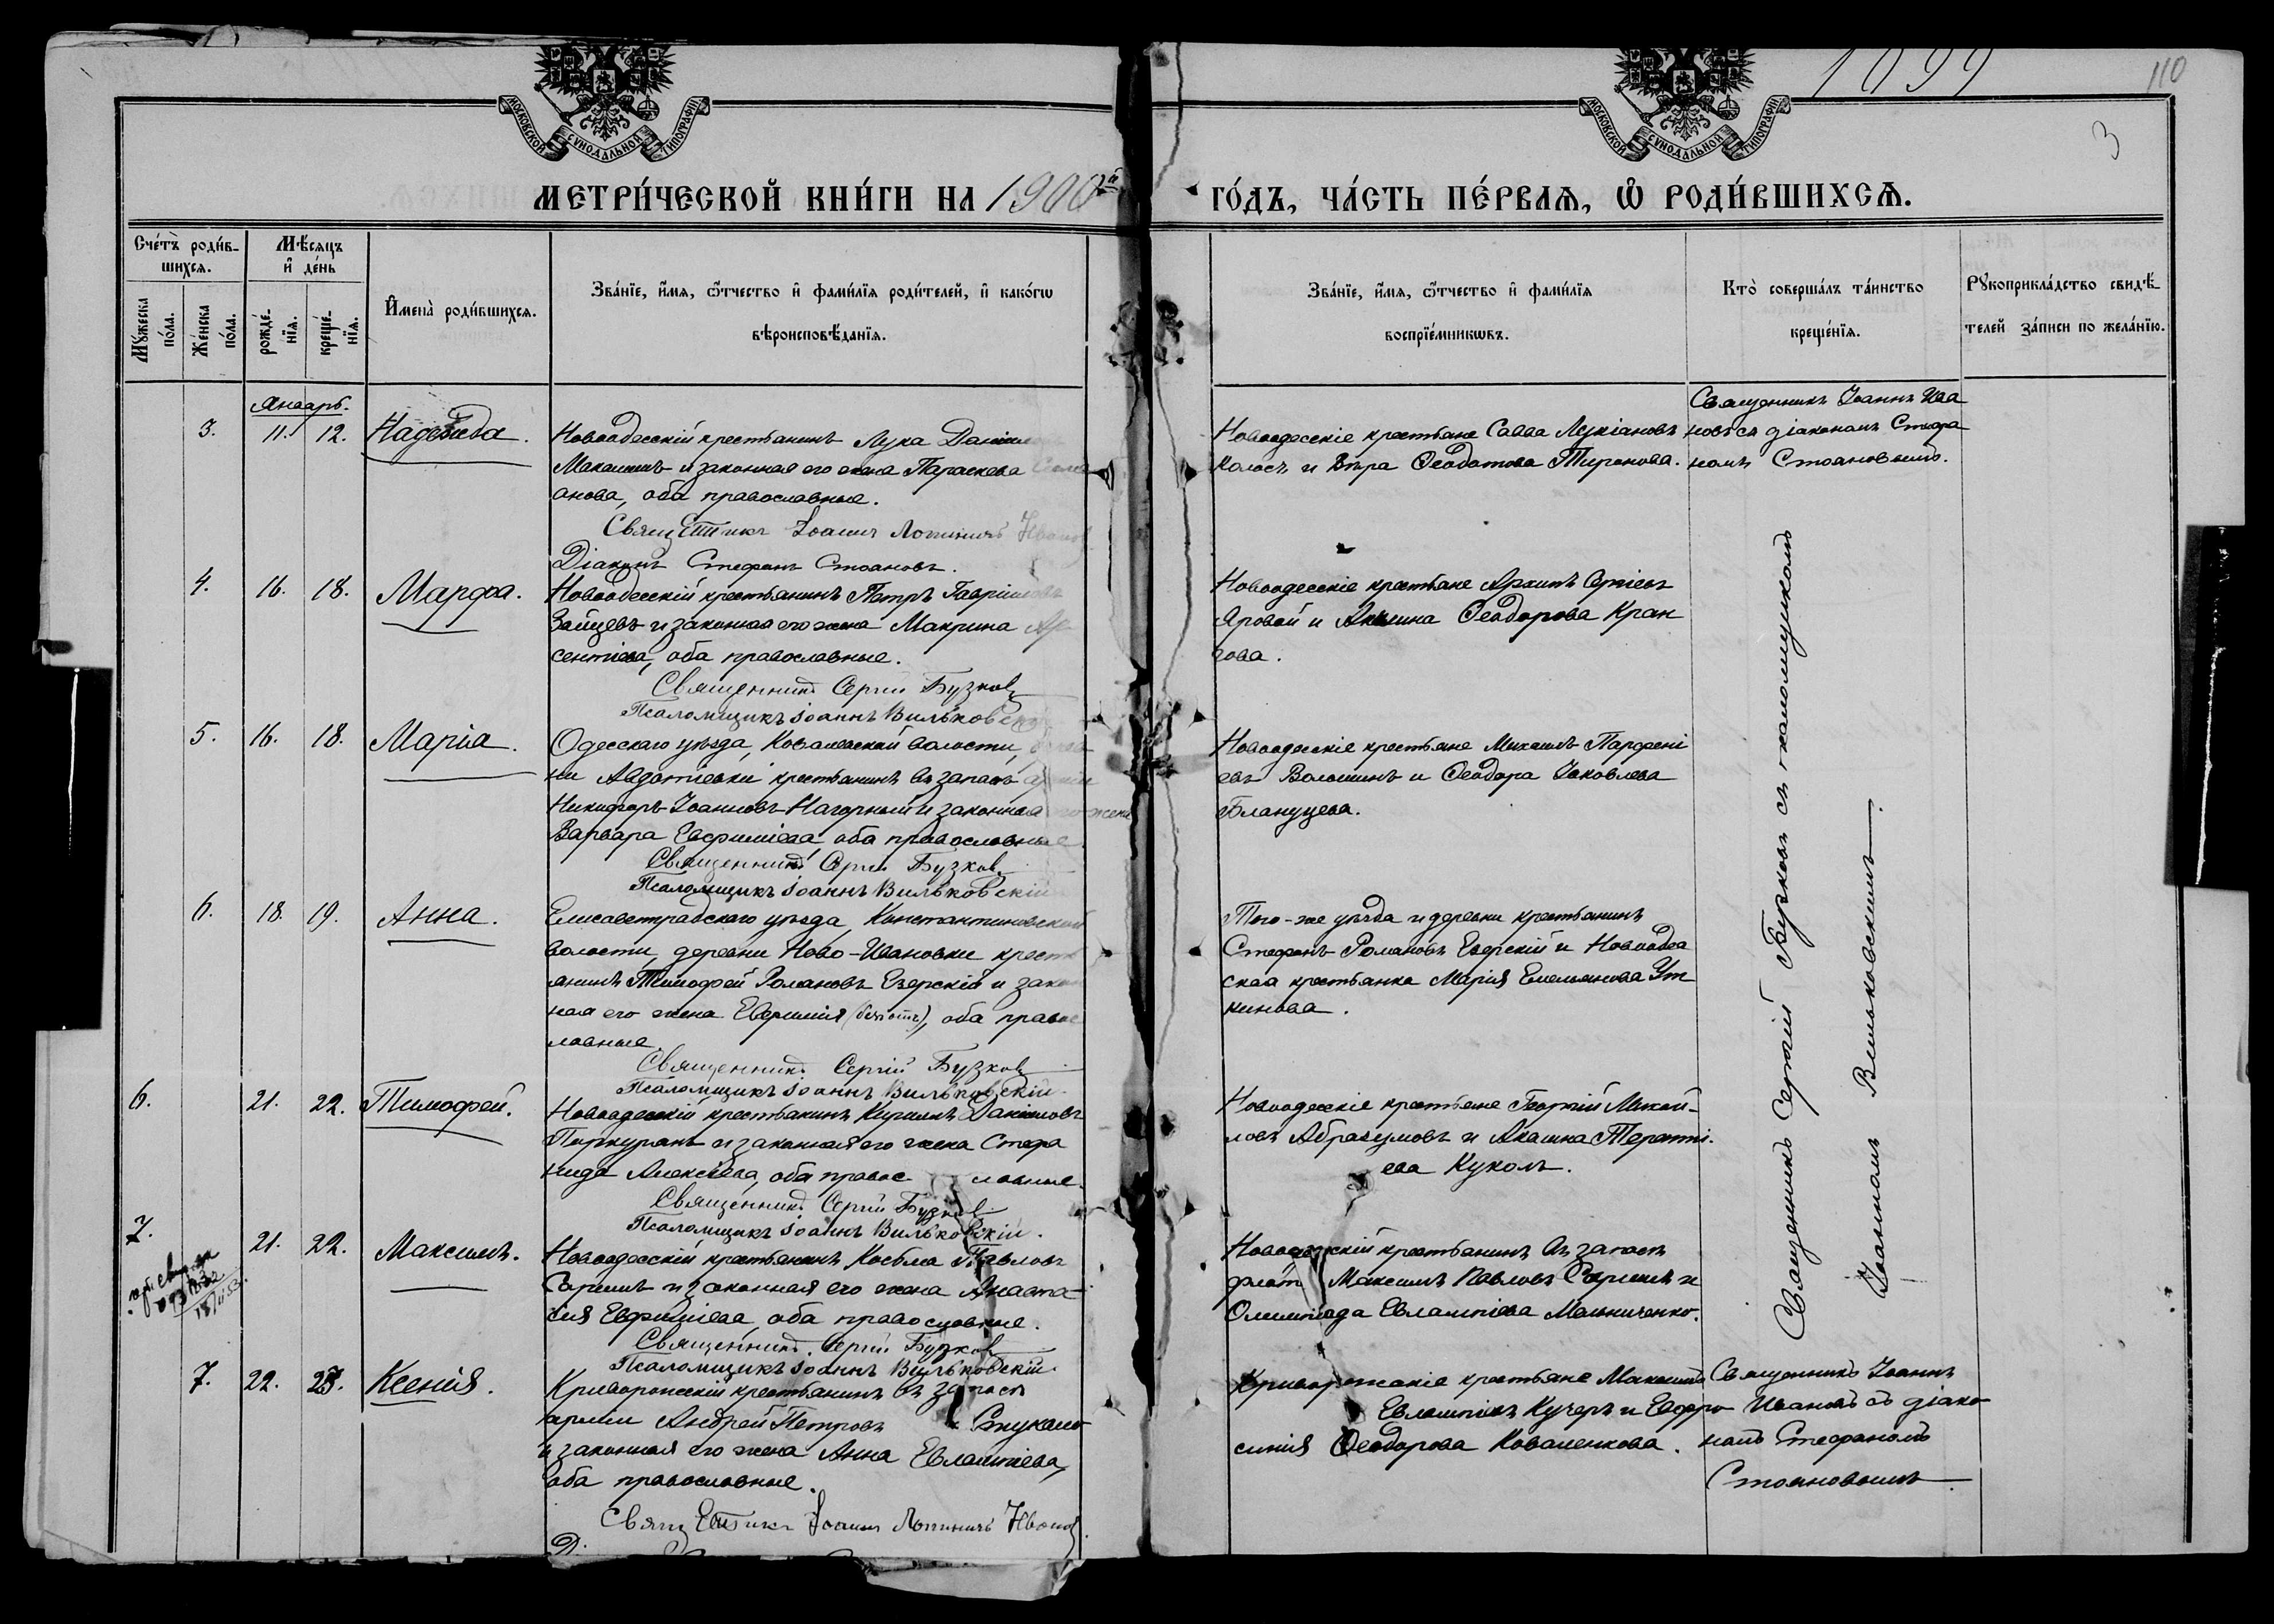 1099
110
3
МОСКОВСКОЙ СѴНОДАЛЬНОЙ ТИПОГРАФІИ
МОСКОВСКОЙ СѴНОДАЛЬНОЙ ТИПОГРАФІИ
МЕТРИ́ЧЕСКОЙ КНИ́ГИ НА 1900й
ГО́ДЪ, ЧА́СТЬ ПЕ́РВАѦ, Ѡ҆ РОДИ́ВШИХСѦ.
Сче́тъ роди́в-
шихсѧ.
Мꙋ́жеска по́ла.
Же́нска по́ла.
Мѣ́сѧцъ
и҆ де́нь
рожде́-
нїѧ.
креще́-
нїѧ.
И҆мена̀ роди́вшихсѧ.
Зва́нїе, и҆́мѧ, ѻ҆́тчество и҆ фами́лїѧ роди́телей, и҆ како́гѡ
вѣроисповѣ́данїѧ.
Зва́нїе, и҆́мѧ, ѻ҆́тчество и҆ фами́лїѧ
воспрїе́мникѡвъ.
Кто̀ соверша́лъ та́инство
креще́нїѧ.
Рꙋкоприкла́дство свидѣ́-
телей за́писи по жела́нїю.
Январь.
3. 11. 12. Надежда.
Новоодесскій крестьянинъ Лука
и законная его жена Параскева
анова, оба православные.
Іоаннъ
Діаконъ Стефанъ Стояновъ.
Новоодесскіе крестьяне Савва Лукіановъ
Колосъ и Вѣра Ѳеодотова Тиронова.
Священникъ Іоаннъ Ива
новъ съ діакономъ Стефа
номъ Стояновымъ.
4. 16. 18. Марфа.
Новоодесскій крестьянинъ Петръ Гавріиловъ
Зайцевъ и законная его жена Макрина Ар
сентіева, оба православные.
Священникъ Сергій Бузков
Псаломщикъ Іоаннъ Вильковскій
Новоодесскіе крестьяне Архипъ Сергіевъ
Яровой и Ѳеодорова Кран
гова.
5. 16. 18. Марія.
Одесскаго уѣзда, Ковалевской волости,
ни Авдотіевки крестьянинъ въ запасѣ
Никифоръ Іоанновъ Нагорный и законная его жена
Варвара Евфиміева, оба православные
Священникъ Сергій Бузков
Псаломщикъ Іоаннъ Вильковскій
Новоодесскіе крестьяне Михаилъ Парфені
евъ Волошинъ и Ѳеодора Іаковлева
Блануцева.
6. 18. 19. Анна.
Елисаветградскаго уѣзда, Константиновской
волости, деревни Ново-Ивановки крест
янинъ Тимофей Романовъ Езерскій и закон
ная его жена Евфимія оба правос
лавные.
Священникъ Сергій Бузков
Псаломщикъ Іоаннъ Вильковскій.
Того-же уѣзда и деревни крестьянинъ
Стефанъ Романовъ Езерскій и Новоодес
ская крестьянка Марія Емельянова Ут
кинова.
6. 21. 22. Тимофей.
Новоодесскій крестьянинъ Кириллъ Даніиловъ
Пиркуранъ и законная его жена Стефа
нида Алексіева, оба правос лавные.
Священникъ Сергій Бузков
Псаломщикъ Іоаннъ Вильковскій.
Новоодесскіе крестьяне Георгій Михай-
ловъ и Акилина Теренті-
ева Куколъ.
7. 21. 22. Максимъ.
Новоодесскій крестьянинъ Косьма Павловъ
и законная его жена Анаста-
сія Евфиміева, оба православные.
Священникъ Сергій Бузков
Псаломщикъ Іоаннъ Вильковскій.
Новоодесскій крестьянинъ въ запасѣ
флота Максимъ Павловъ и
Олимпіада Евлампіева Мельниченко.
Священникъ Сергій Бузковъ съ псаломщикомъ
Іоанномъ Вильковскимъ.
7. 22. 23. Ксенія.
Криворожскій крестьянинъ въ запасѣ
арміи Андрей Петровъ
и законная его жена Анна Евлампіева,
оба православные.
Іоаннъ
Криворожскіе крестьяне Максимъ
Евлампіевъ Кучеръ и Евфро
синія Ѳеодорова Коваленкова.
Священникъ Іоаннъ
Ивановъ съ діако-
номъ Стефаномъ
Стояновымъ.